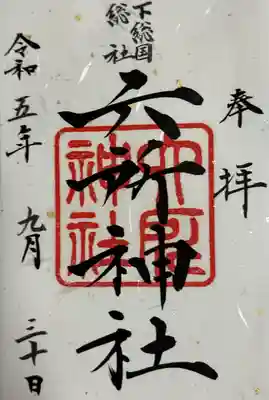 奉拝
下総国
総社
六所神社
六所神社
令和五年 九月 三十日